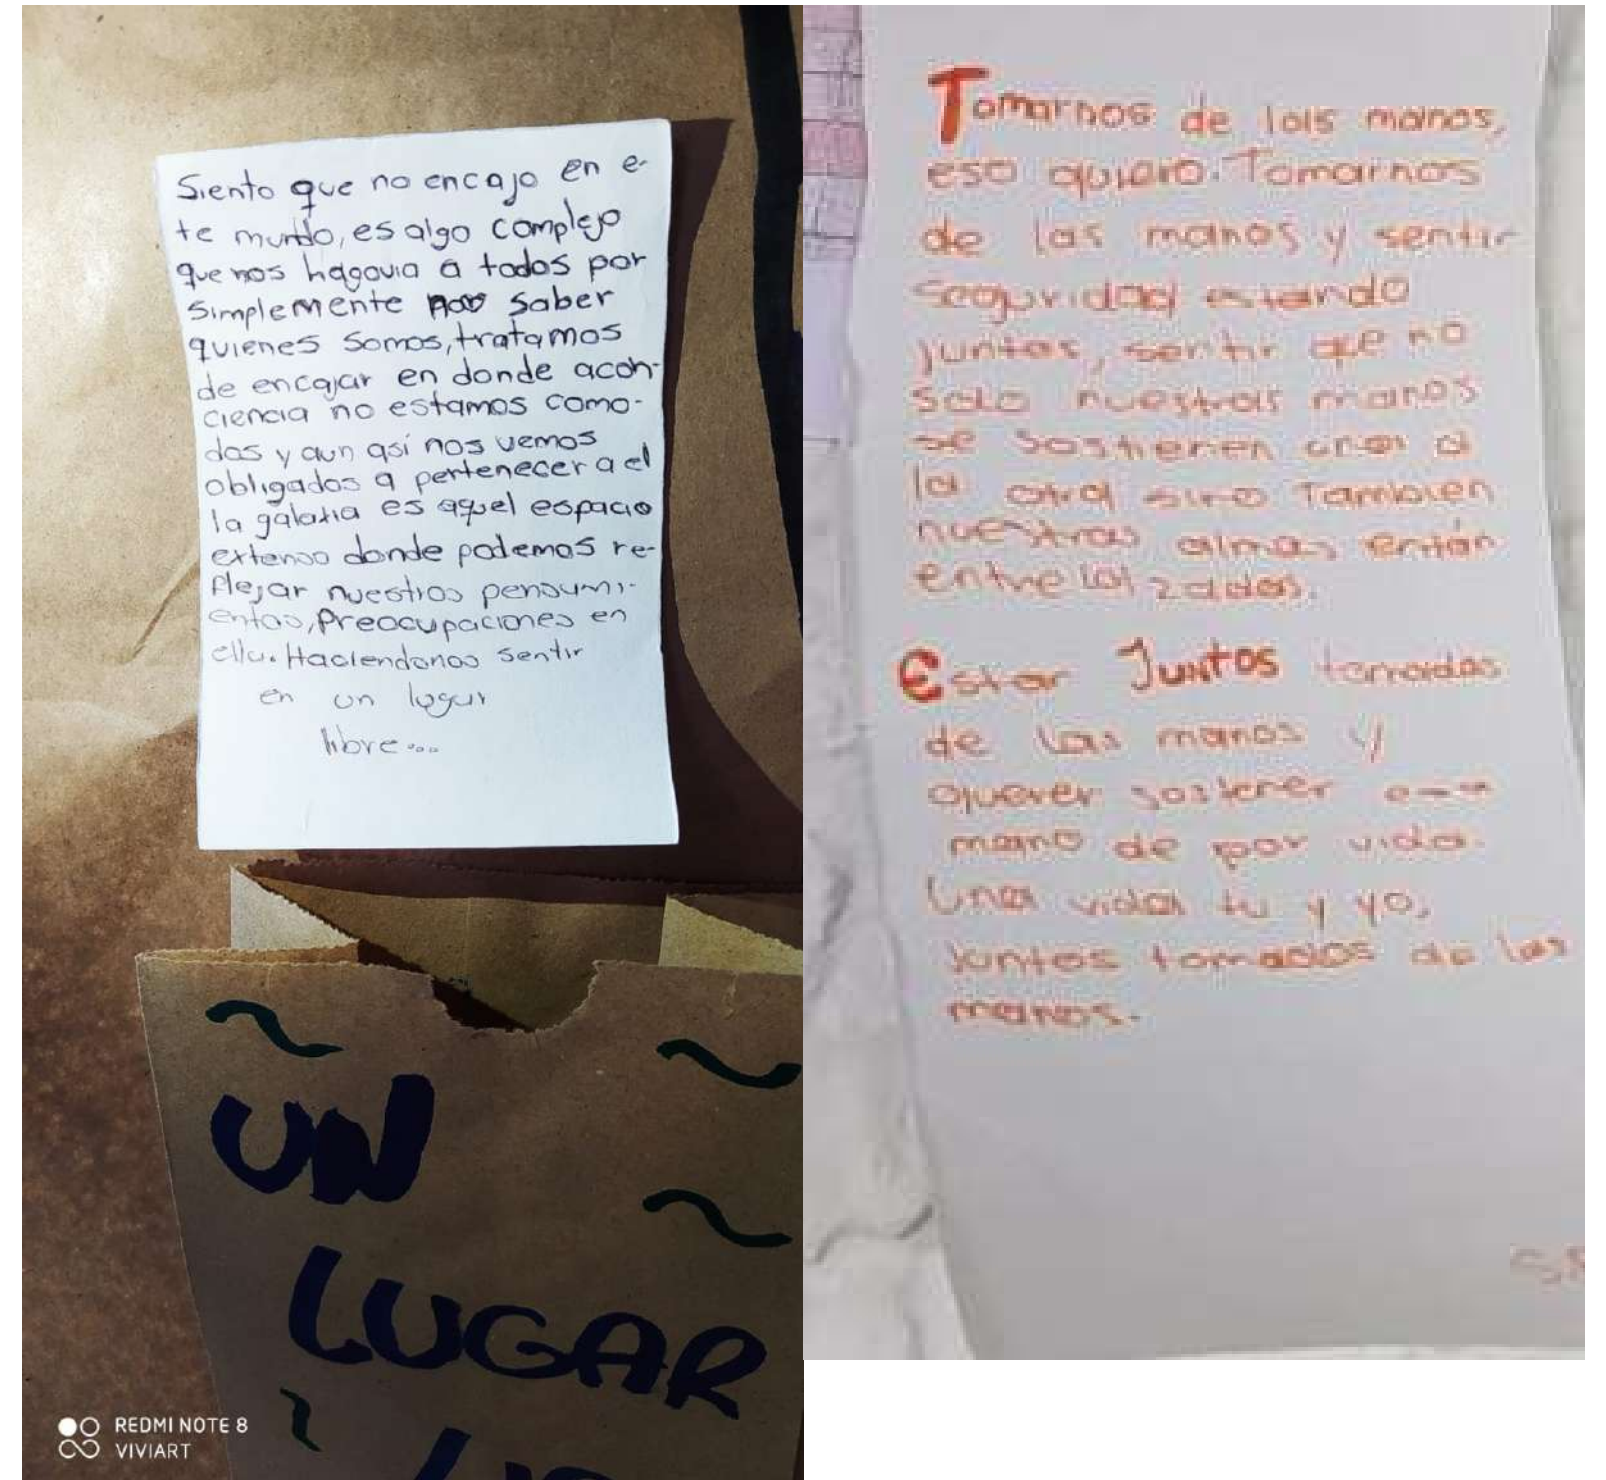 Siento que no encajo en e-
te mundo, es algo complejo
que nos hagovia a todos por
simplemente saber
quienes somos, tratamos
de encajar en donde acon-
ciencia no estamos como-
dos y aun así nos vemos
obligados a pertenecer a el
la galaxia es aquel espacio
extenso donde podemos re-
flejar nuestros pensami-
entos, Preocupaciones en
ella. Haciendonos sentir
en un lugar
libre...
UN
LUGAR
REDMI NOTE 8
VIVIART
Tomarnos de las manos,
eso quiero. Tomarnos
de las manos y sentir
seguridad estando
juntas, sentir que no
solo nuestras manos
se sostienen una a
la otra sino Tambien
nuestras almas están
entrelazadas.
Estar Juntos tomadas
de las manos y
querer sostener
mano de por vida.
Una vida tu y yo,
juntos tomados de las
manos.